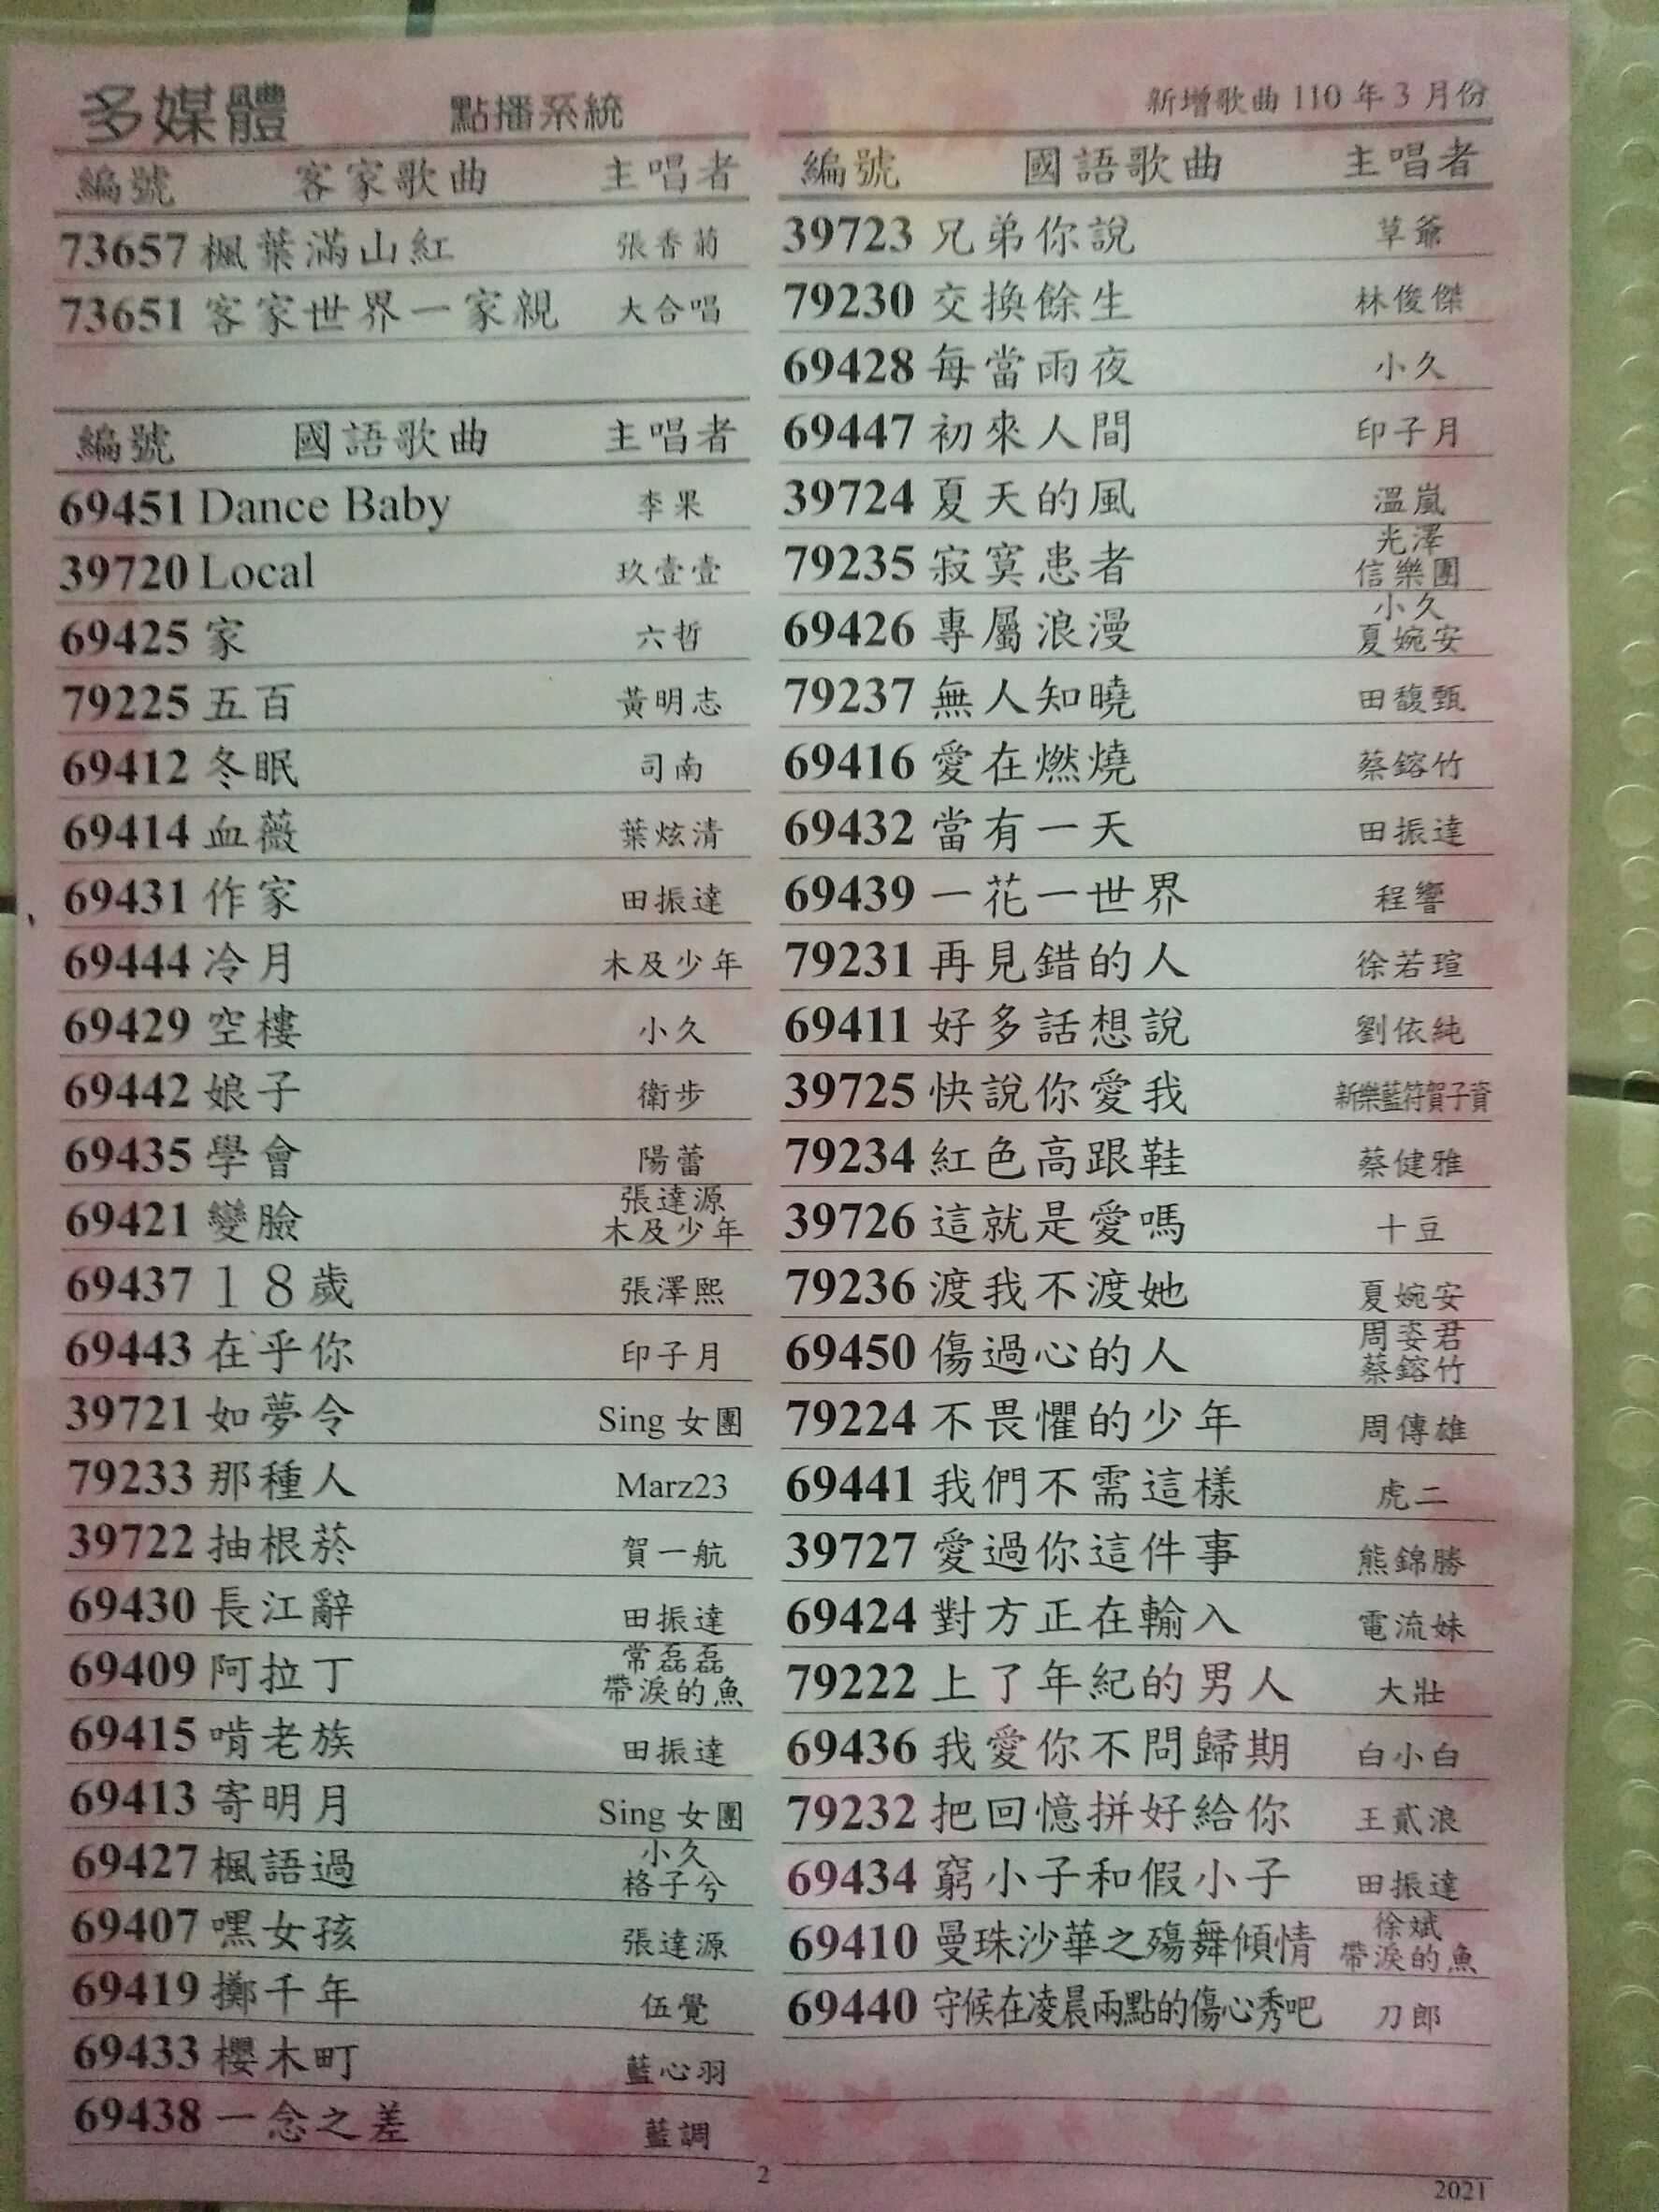 多媒體 點播系統
新增歌曲 110 年 3 月份
編號 客家歌曲 主唱者
73657 楓葉滿山紅 張香菊
73651 客家世界一家親 大合唱
編號 國語歌曲 主唱者
69451 Dance Baby 李果
39720 Local 玖壹壹
69425 家 六哲
79225 五百 黃明志
69412 冬眠 司南
69414 血薇 葉炫清
69431 作家 田振達
69444 冷月 木及少年
69429 空樓 小久
69442 娘子 衛步
69435 學會 陽蕾
69421 變臉 張達源 木及少年
69437 18歲 張澤熙
69443 在乎你 印子月
39721 如夢令 Sing 女團
79233 那種人 Marz23
39722 抽根菸 賀一航
69430 長江辭 田振達
69409 阿拉丁 常磊磊 帶淚的魚
69415 啃老族 田振達
69413 寄明月 Sing 女團
69427 楓語過 小久 格子兮
69407 嘿女孩 張達源
69419 擲千年 伍覺
69433 櫻木町 藍心羽
69438 一念之差 藍調
編號 國語歌曲 主唱者
39723 兄弟你說 草爺
79230 交換餘生 林俊傑
69428 每當雨夜 小久
69447 初來人間 印子月
39724 夏天的風 溫嵐
79235 寂寞患者 光澤 信樂團
69426 專屬浪漫 小久 夏婉安
79237 無人知曉 田馥甄
69416 愛在燃燒 蔡鎔竹
69432 當有一天 田振達
69439 一花一世界 程響
79231 再見錯的人 徐若瑄
69411 好多話想說 劉依純
39725 快說你愛我 新樂藍符賀子資
79234 紅色高跟鞋 蔡健雅
39726 這就是愛嗎 十豆
79236 渡我不渡她 夏婉安
69450 傷過心的人 周姿君 蔡鎔竹
79224 不畏懼的少年 周傳雄
69441 我們不需這樣 虎二
39727 愛過你這件事 熊錦勝
69424 對方正在輸入 電流妹
79222 上了年紀的男人 大壯
69436 我愛你不問歸期 白小白
79232 把回憶拼好給你 王貳浪
69434 窮小子和假小子 田振達
69410 曼珠沙華之殤舞傾情 徐斌 帶淚的魚
69440 守候在凌晨兩點的傷心秀吧 刀郎
2
2021